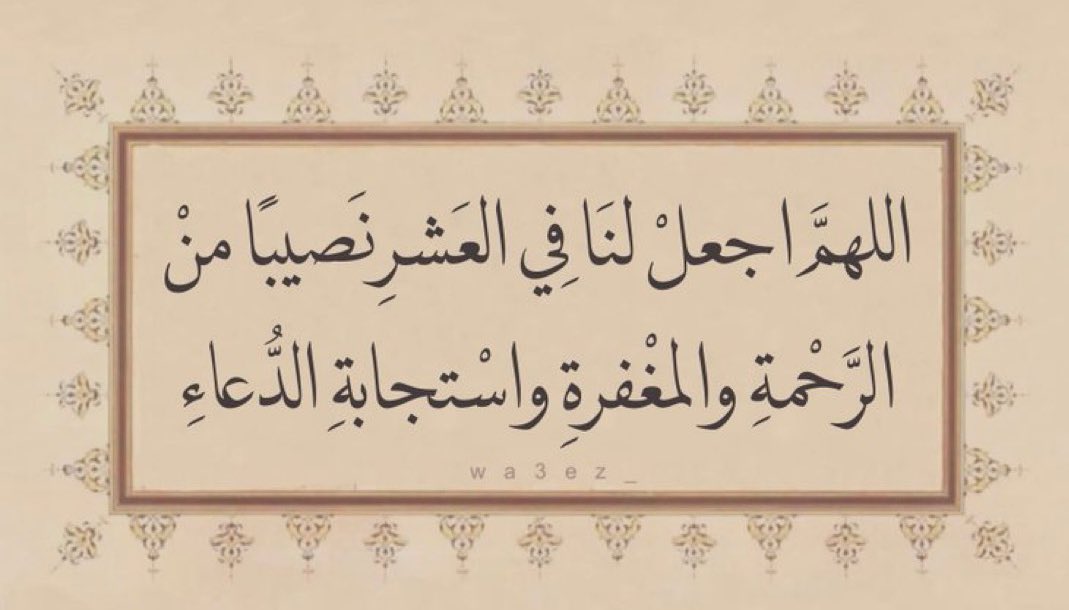 اللهمَّ اجعلْ لنَا فِي العَشرِ نَصيبًا منْ
الرَّحْمةِ والمغْفرةِ واسْتجابةِ الدُّعاءِ
wa3ez_